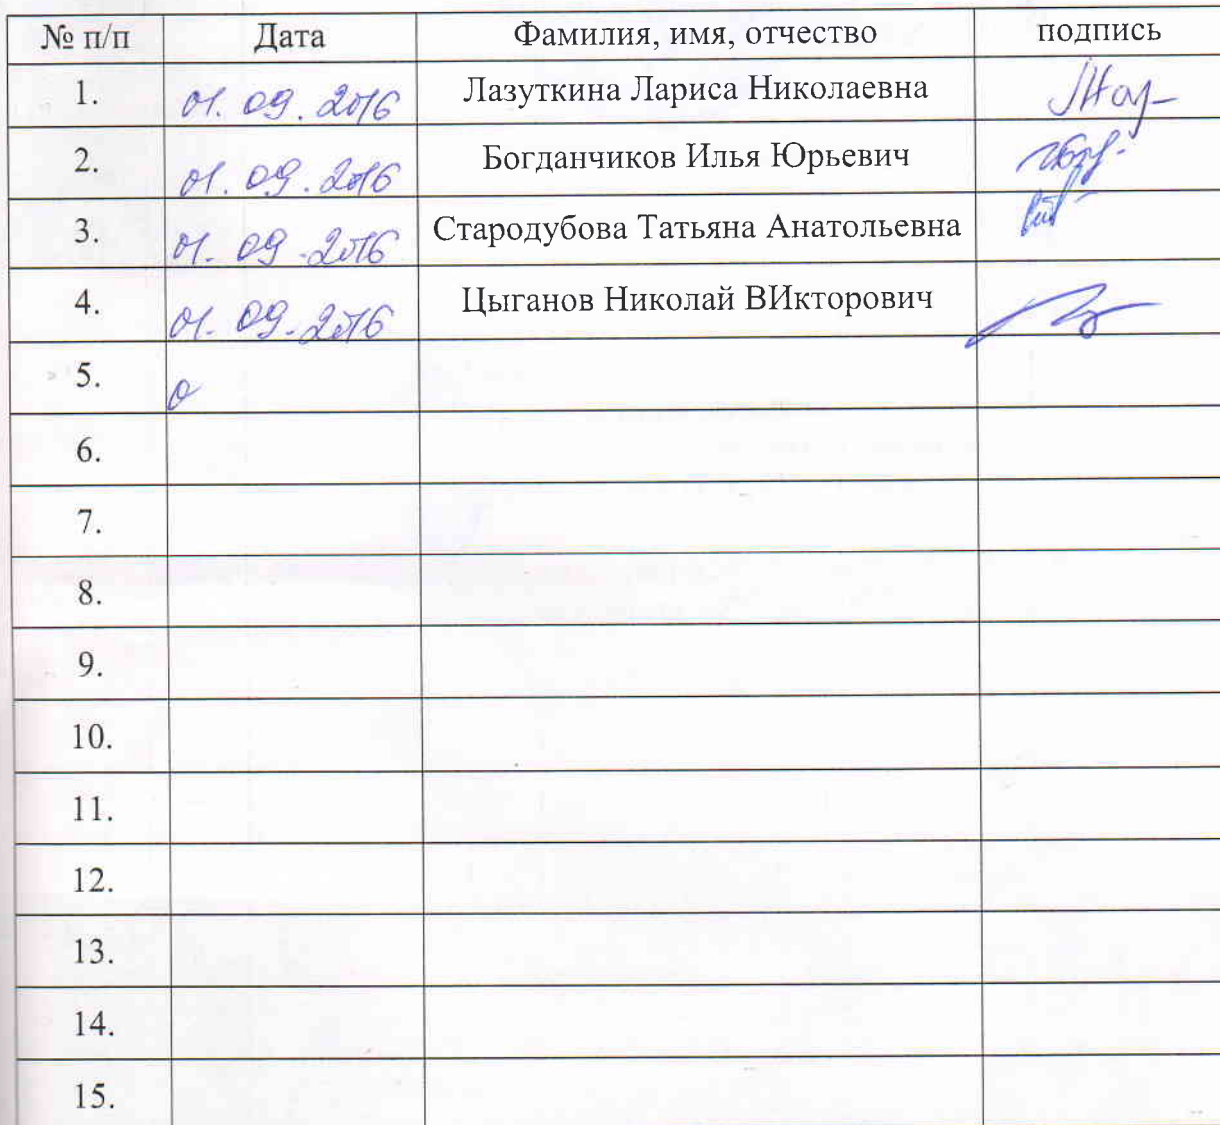 № п/п Дата Фамилия, имя, отчество подпись
1. 01.09.2016 Лазуткина Лариса Николаевна
2. 01.09.2016 Богданчиков Илья Юрьевич
3. 01.09.2016 Стародубова Татьяна Анатольевна
4. 01.09.2016 Цыганов Николай ВИкторович
5. 0
6.
7.
8.
9.
10.
11.
12.
13.
14.
15.